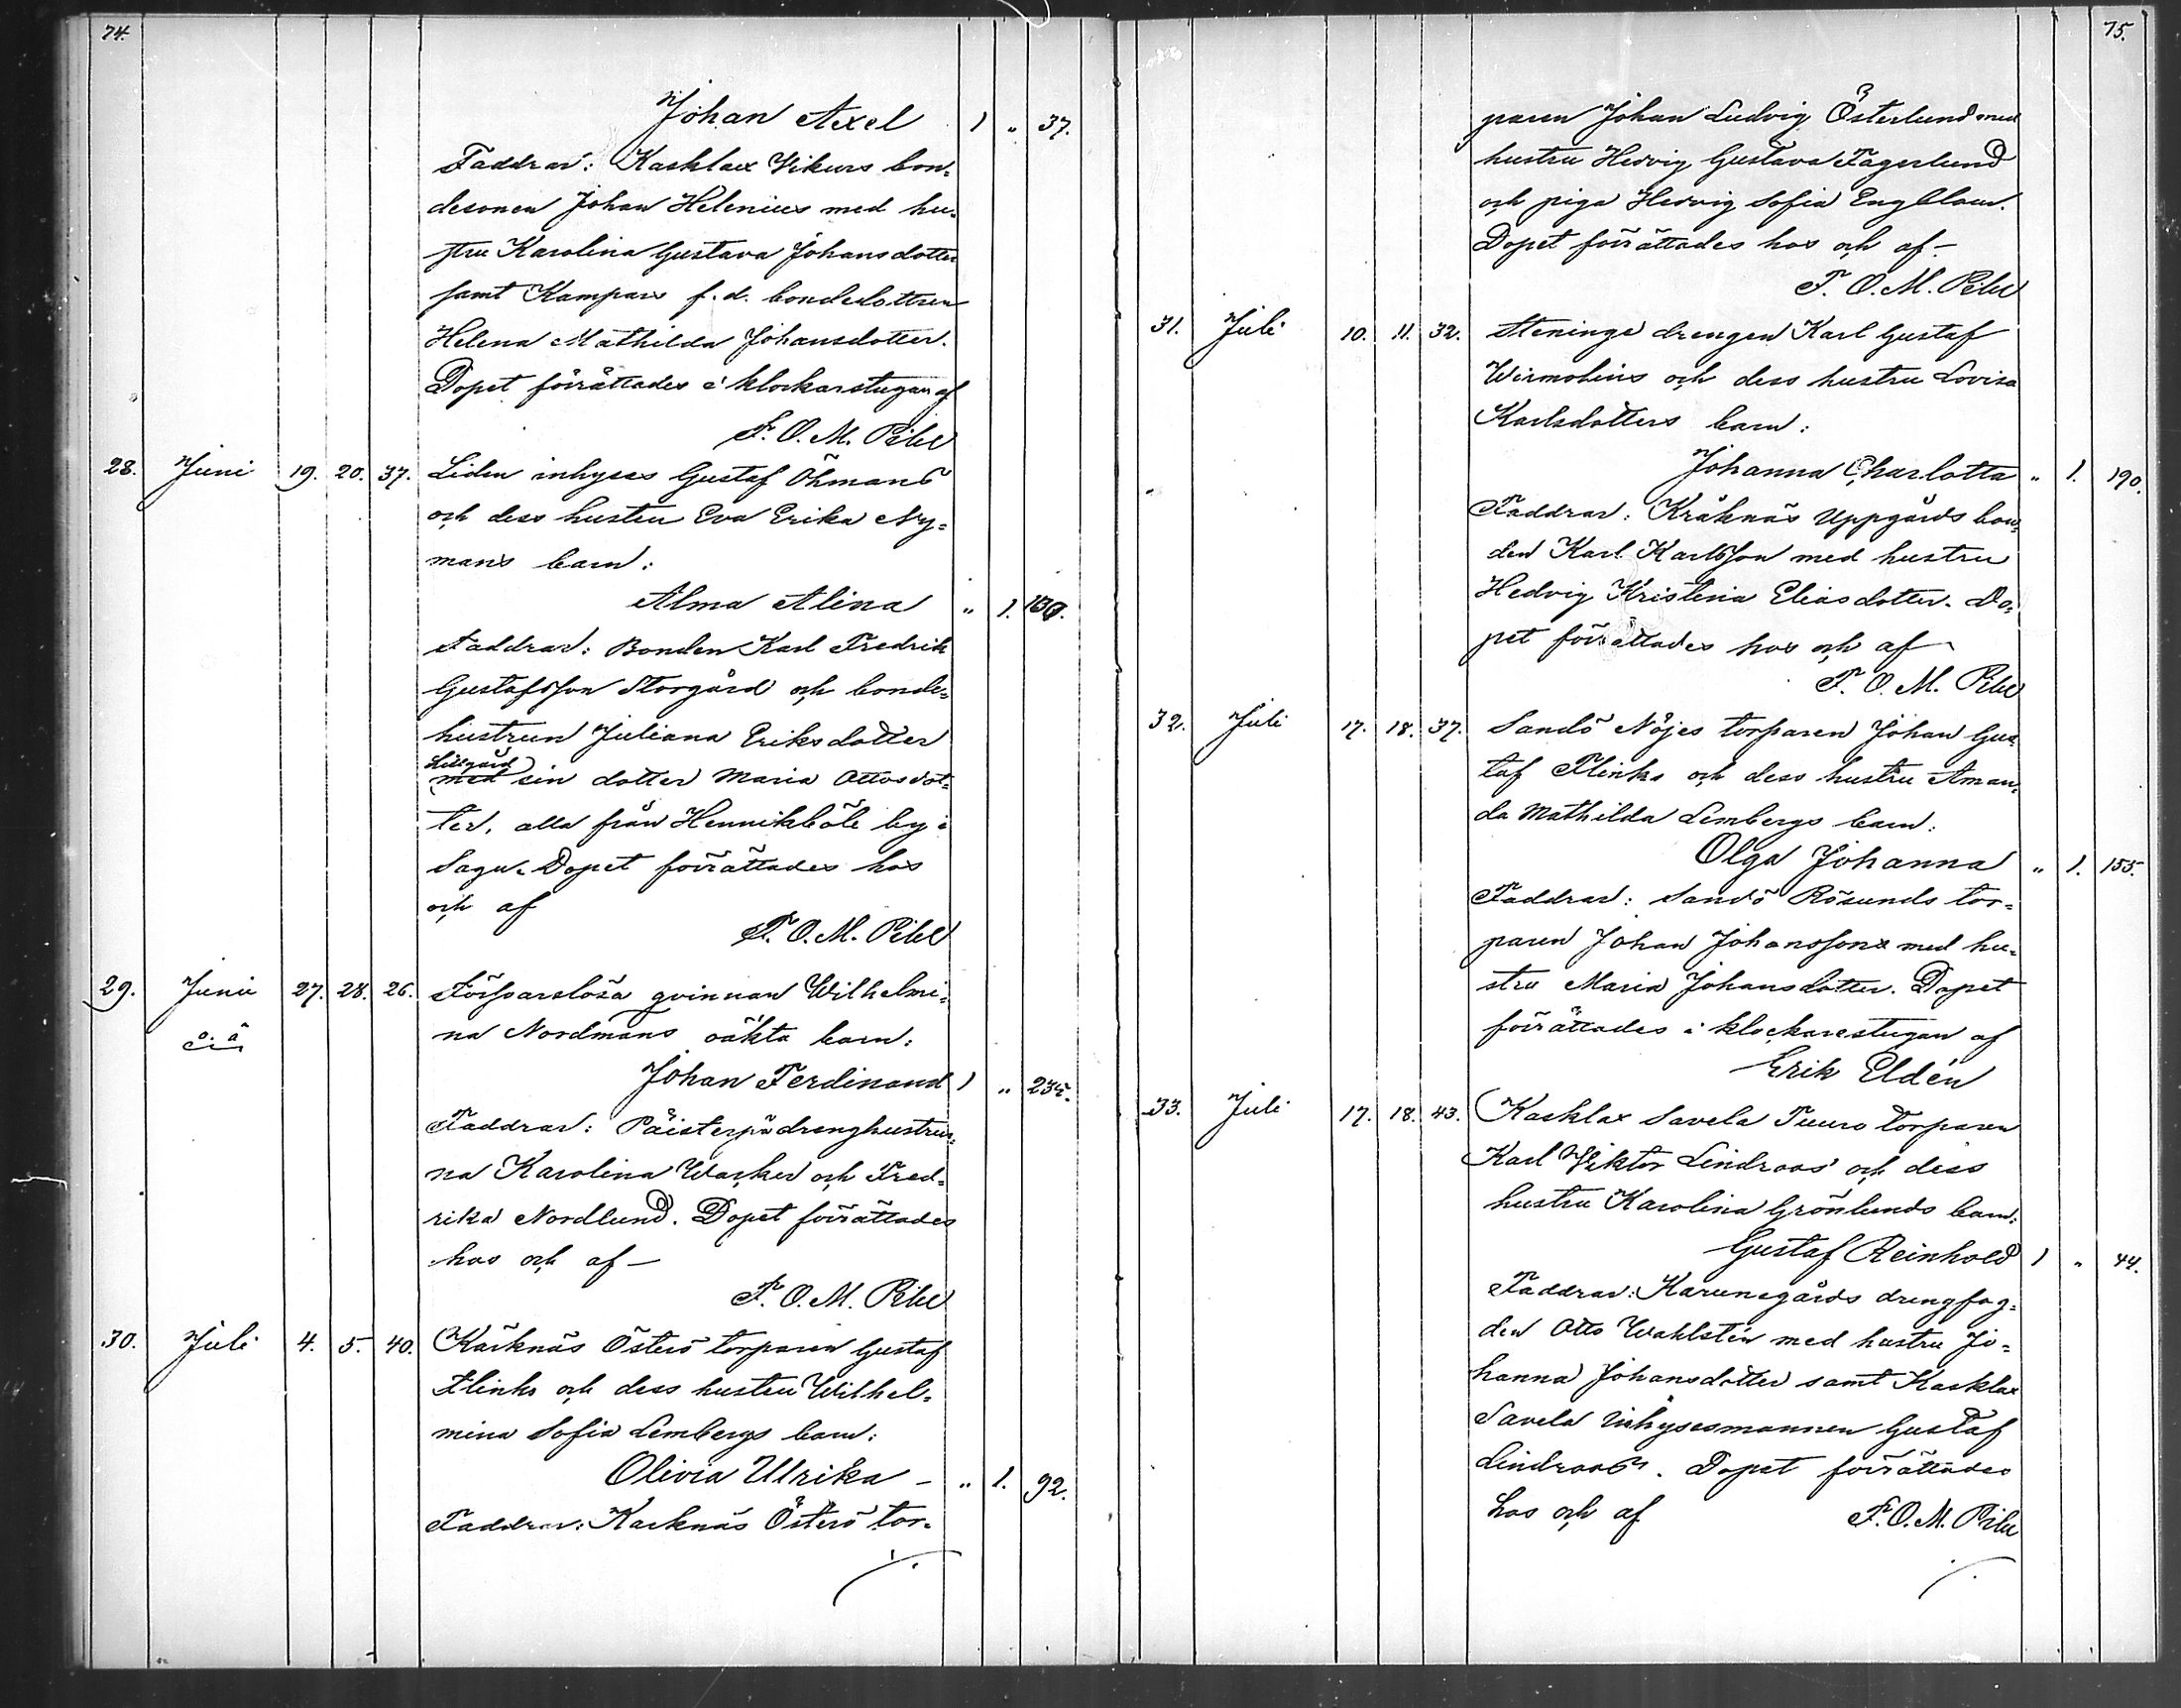 74.
Johan Axel 1 " 37.
Faddrar: Kasklax Vikurs bon=
desonen Johan Helenius med hu=
stru Karolina Gustava Johansdotter
samt Kampars f.d. bondedottren
Helena Mathilda Johansdotter.
Dopet förrättades i klockarstugan af
F. O. M. Pihl
28. Juni 19. 20. 37. Liden inhyses Gustaf Öhmans
och dess hustru Eva Erika Ny=
mans barn:
Alma Alina " 1.
Faddrar: Bonden Karl Fredrik
Gustafsson Storgård och bonde=
hustrun Juliana Eriksdotter
Lillgård
med sin dotter Maria Ottosdot=
ter, alla från Hennikböle by i
Sagu. Dopet förrättades hos
och af
F. O. M. Pihl
29. Juni 27. 28. 26. Försvarslösa qvinnan Wilhelmi=
o. ä
na Nordmans oäkta barn:
Johan Ferdinand 1 " 235.
Faddrar: Päisterpä drenghustrur=
na Karolina Wacker och Fred=
rika Nordlund. Dopet förrättades
hos och af —
F. O. M. Pihl
30. Juli 4. 5. 40. Kärknäs Österö torparen Gustaf
Flinks och dess hustru Wilhel=
mina Sofia Lembergs barn:
Olivia Ulrika — " 1. 92.
Faddrar: Karknäs Österö tor=
./.
75.
paren Johan Ludvig Österlund med
hustru Hedvig Gustava Fagerlund
och piga Hedvig Sofia Engblom.
Dopet förrättades hos och af —
F. O. M. Pihl
31. Juli 10. 11. 32. Steninge drengen Karl Gustaf
och dess hustru Lovisa
Karlsdotters barn:
Johanna Charlotta " 1. 190.
Faddrar: Kråknäs Uppgårds bon=
den Karl Karlsson med hustru
Hedvig Kristina Eliasdotter. Do=
pet förrättades hos och af
F. O. M. Pihl
32. Juli 17. 18. 37. Sandö Nöjes torparen Johan Gus=
taf Flinks och dess hustru Aman=
da Mathilda Lembergs barn:
Olga Johanna " 1. 155.
Faddrar: Sandö Rösunds tor=
paren Johan Johanssons med hu=
stru Maria Johansdotter. Dopet
förrättades i klockarestugan af
Erik Eldén
33. Juli 17. 18. 43. Kasklax Savela Tuuro torparen
Karl Viktor Lindroos' och dess
hustru Karolina Grönlunds barn:
Gustaf Reinhold 1 " 44.
Faddrar: Karunagårds drengfog=
den Otto Wahlstén med hustru Jo=
hanna Johansdotter samt Kasklax
Savela inhysesmannen Gustaf
Lindroos. Dopet förrättades
hos och af F. O. M. Pihl
./.